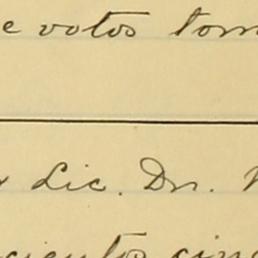 e votos tom
Lic. Dr.
ciento cinc